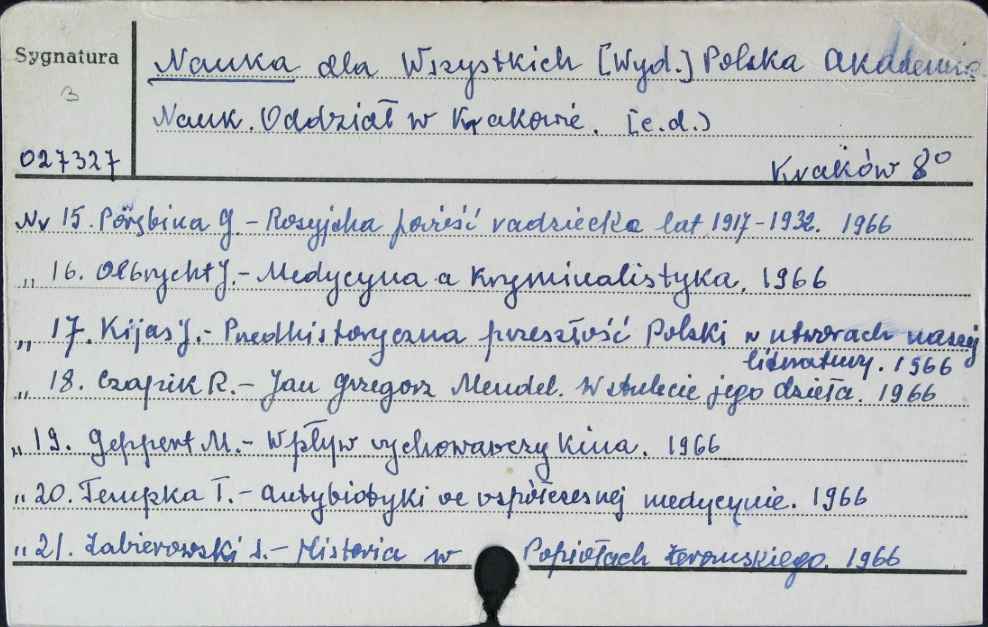 Sygnatura
B
027327
Nauka dla Wszystkich [Wyd.] Polska Akademia
Nauk. Oddział w Krakowie. [c.d.)
Kraków 8°
Nr 15. Porębina G. - Rosyjska powieść radziecka lat 1917-1932. 1966
„ 16. Olbrycht J. - Medycyna a kryminalistyka. 1966
„ 17. Kijas J. - Predhistoryczna przeszłość Polski w utworach naszej
literatury. 1966
„ 18. Czapik R. - Jan Grzegorz Mendel. W stulecie jego dzieła. 1966
„ 19. Geppert M. - Wpływ wychowawczy kina. 1966
„ 20. Tempka T. - Antybiotyki we współczesnej medycynie. 1966
„ 21. Zabierowski S. - Historia w Popiołach Żeromskiego. 1966